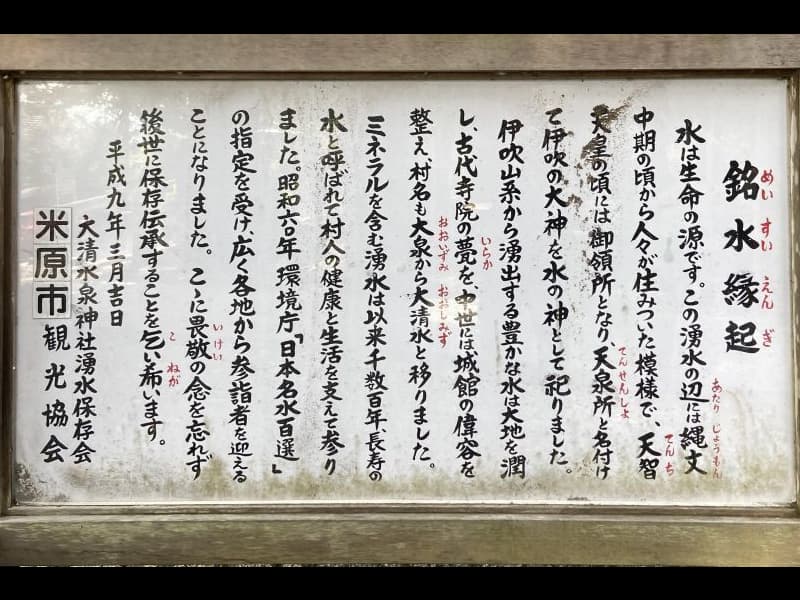 銘水縁起
めいすいえんぎ
水は生命の源です。この湧水の辺には縄文
あたり じょうもん
中期の頃から人々が住みついた模様で、天智
てんち
天皇の頃には御領所となり、天泉所と名付け
てんせんしょ
て伊吹の大神を水の神として祀りました。
伊吹山系から湧出する豊かな水は大地を潤
し、古代寺院の甍を、中世には城館の偉容を
いらか
整え、村名も大泉から大清水と移りました。
おおいずみ おおしみず
ミネラルを含む湧水は以来千数百年、長寿の
水と呼ばれて村人の健康と生活を支えて参り
ました。昭和六〇年環境庁「日本名水百選」
の指定を受け、広く各地から参詣者を迎える
ことになりました。こゝに畏敬の念を忘れず
いけい
後世に保存伝承することを乞い希います。
こ ねが
平成九年三月吉日
大清水泉神社湧水保存会
米原市観光協会